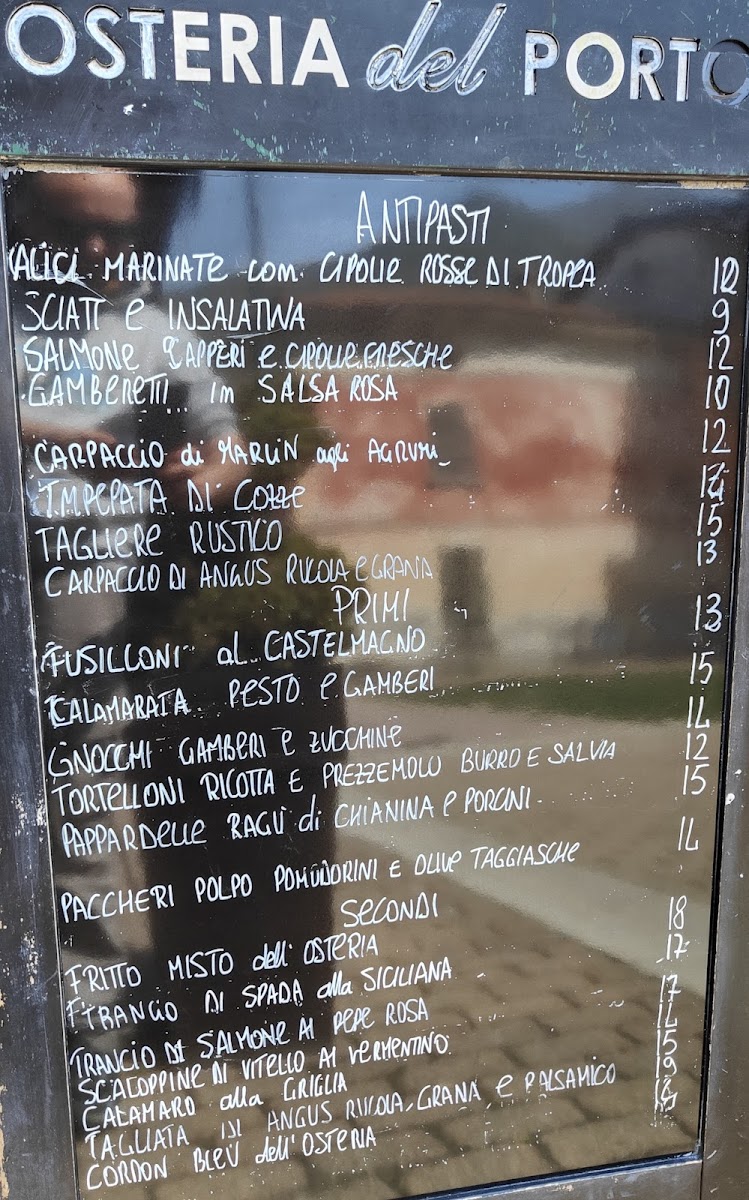 OSTERIA del PORTO
ANTIPASTI
ALICI MARINATE con CIPOLLE ROSSE DI TROPEA 12
SCIATT e INSALATINA 9
SALMONE CAPPERI e CIPOLLE FRESCHE 12
GAMBERETTI in SALSA ROSA 10
CARPACCIO di MARLIN agli AGRUMI 12
IMPEPATA DI COZZE
TAGLIERE RUSTICO 15
CARPACCIO DI ANGUS RUCOLA e GRANA 13
PRIMI
FUSILLONI al CASTELMAGNO 13
CALAMARATA PESTO e GAMBERI 15
GNOCCHI GAMBERI e ZUCCHINE 14
TORTELLONI RICOTTA E PREZZEMOLO BURRO E SALVIA 12
PAPPARDELLE RAGÙ di CHIANINA e PORCINI 15
PACCHERI POLPO POMODORINI E OLIVE TAGGIASCHE 14
SECONDI
FRITTO MISTO dell' OSTERIA 18
TRANCIO DI SPADA alla SICILIANA 17
TRANCIO DI SALMONE AL PEPE ROSA 17
SCALOPPINE DI VITELLO AL VERMENTINO 14
CALAMARO alla GRIGLIA 15
TAGLIATA DI ANGUS RUCOLA, GRANA e BALSAMICO
CORDON BLEU dell'OSTERIA